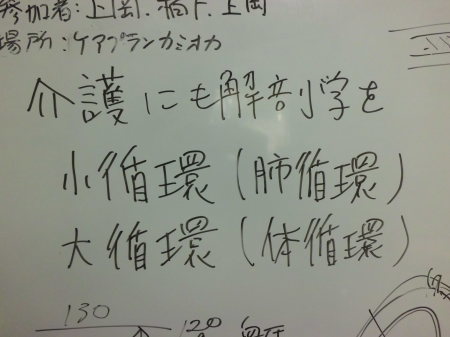 参加者:上岡.橋下.上岡
場所:ケアプランカミオカ
介護にも解剖学を
小循環(肺循環)
大循環(体循環)
130
120